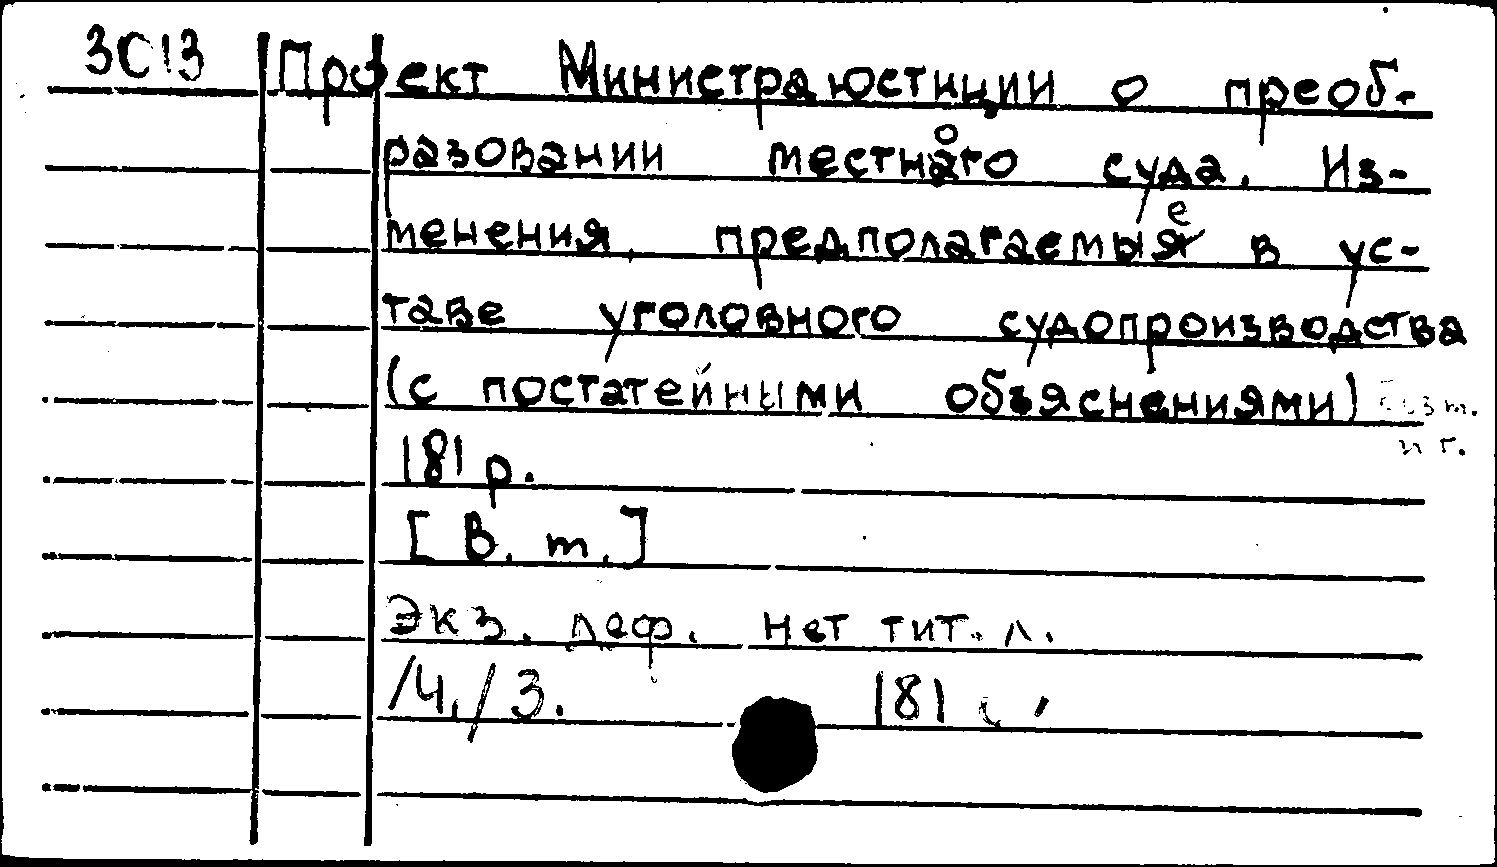 3С13 Проект Министра юстиции о преоб-
разовании местного суда. Из-
менения, предполагаемые в ус-
таве уголовного судопроизводства
(с постатейными объяснениями) Без т.
и г.
181 р.
[В. т.]
Экз. деф. Нет тит. л.
/Ч./3. 181 с.